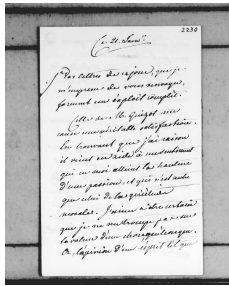 2230
Ce 21. Janv.
Vos lettres de ce jour, que je
m'empresse de vous renvoyer,
forment un exploit complet.
Celle de M. Guizot me
cause une véritable satisfaction.
En trouvant que j'ai raison
il vient en aide à un sentiment
qui en moi atteint la hauteur
d'une passion, et qui n'est autre
que celui de la quiétude
morale. J'aime à être certain
que je ne me trompe pas sur
la valeur d'un chacun
Or, l'opinion d'un esprit tel que